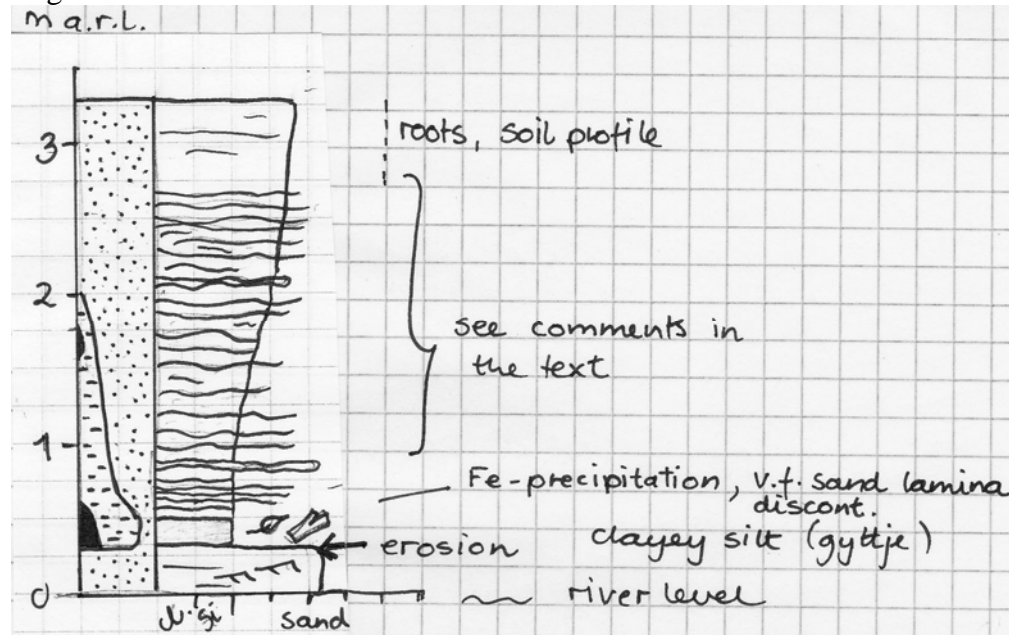 m a.r.l.
3
roots, soil profile
2
see comments in
the text
1
Fe-precipitation, v.f. sand lamina
discont.
erosion
clayey silt (gyttje)
0
river level
si
sand